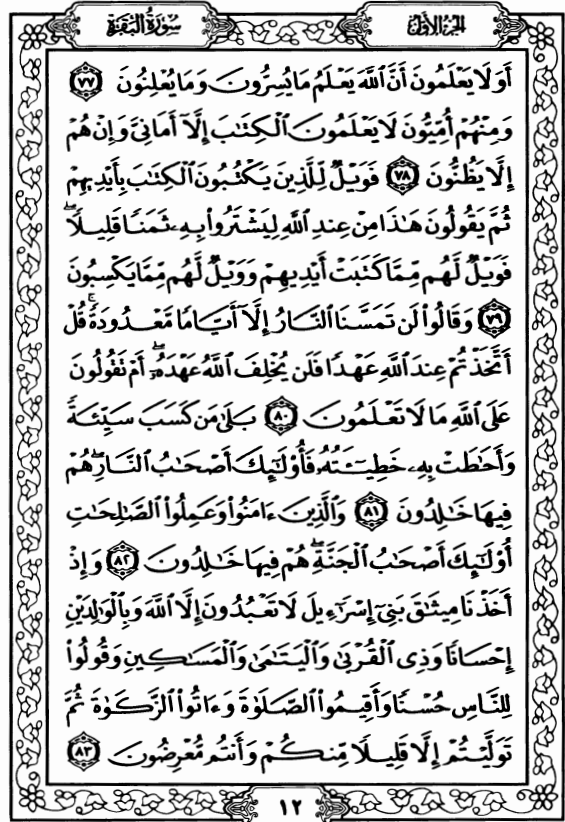 سُورَةُ البَقَرَةِ
الجُزءُ الأَوَّلُ
أَوَلَا يَعْلَمُونَ أَنَّ ٱللَّهَ يَعْلَمُ مَا يُسِرُّونَ وَمَا يُعْلِنُونَ ٧٧
وَمِنْهُمْ أُمِّيُّونَ لَا يَعْلَمُونَ ٱلْكِتَٰبَ إِلَّآ أَمَانِىَّ وَإِنْ هُمْ
إِلَّا يَظُنُّونَ ٧٨ فَوَيْلٌ لِّلَّذِينَ يَكْتُبُونَ ٱلْكِتَٰبَ بِأَيْدِيهِمْ
ثُمَّ يَقُولُونَ هَٰذَا مِنْ عِندِ ٱللَّهِ لِيَشْتَرُوا۟ بِهِۦ ثَمَنًا قَلِيلًا ۖ
فَوَيْلٌ لَّهُم مِّمَّا كَتَبَتْ أَيْدِيهِمْ وَوَيْلٌ لَّهُم مِّمَّا يَكْسِبُونَ
٧٩ وَقَالُوا۟ لَن تَمَسَّنَا ٱلنَّارُ إِلَّآ أَيَّامًا مَّعْدُودَةً ۚ قُلْ
أَتَّخَذْتُمْ عِندَ ٱللَّهِ عَهْدًا فَلَن يُخْلِفَ ٱللَّهُ عَهْدَهُۥٓ ۖ أَمْ تَقُولُونَ
عَلَى ٱللَّهِ مَا لَا تَعْلَمُونَ ٨٠ بَلَىٰ مَن كَسَبَ سَيِّئَةً
وَأَحَٰطَتْ بِهِۦ خَطِيٓـَٔتُهُۥ فَأُو۟لَٰٓئِكَ أَصْحَٰبُ ٱلنَّارِ ۖ هُمْ
فِيهَا خَٰلِدُونَ ٨١ وَٱلَّذِينَ ءَامَنُوا۟ وَعَمِلُوا۟ ٱلصَّٰلِحَٰتِ
أُو۟لَٰٓئِكَ أَصْحَٰبُ ٱلْجَنَّةِ ۖ هُمْ فِيهَا خَٰلِدُونَ ٨٢ وَإِذْ
أَخَذْنَا مِيثَٰقَ بَنِىٓ إِسْرَٰٓءِيلَ لَا تَعْبُدُونَ إِلَّا ٱللَّهَ وَبِٱلْوَٰلِدَيْنِ
إِحْسَانًا وَذِى ٱلْقُرْبَىٰ وَٱلْيَتَٰمَىٰ وَٱلْمَسَٰكِينِ وَقُولُوا۟
لِلنَّاسِ حُسْنًا وَأَقِيمُوا۟ ٱلصَّلَوٰةَ وَءَاتُوا۟ ٱلزَّكَوٰةَ ثُمَّ
تَوَلَّيْتُمْ إِلَّا قَلِيلًا مِّنكُمْ وَأَنتُم مُّعْرِضُونَ ٨٣
١٢